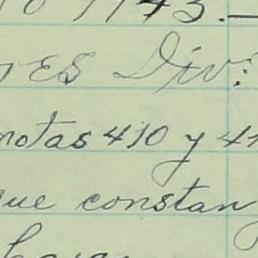 1943.—
ES Div:
notas 410 y 41
que constan